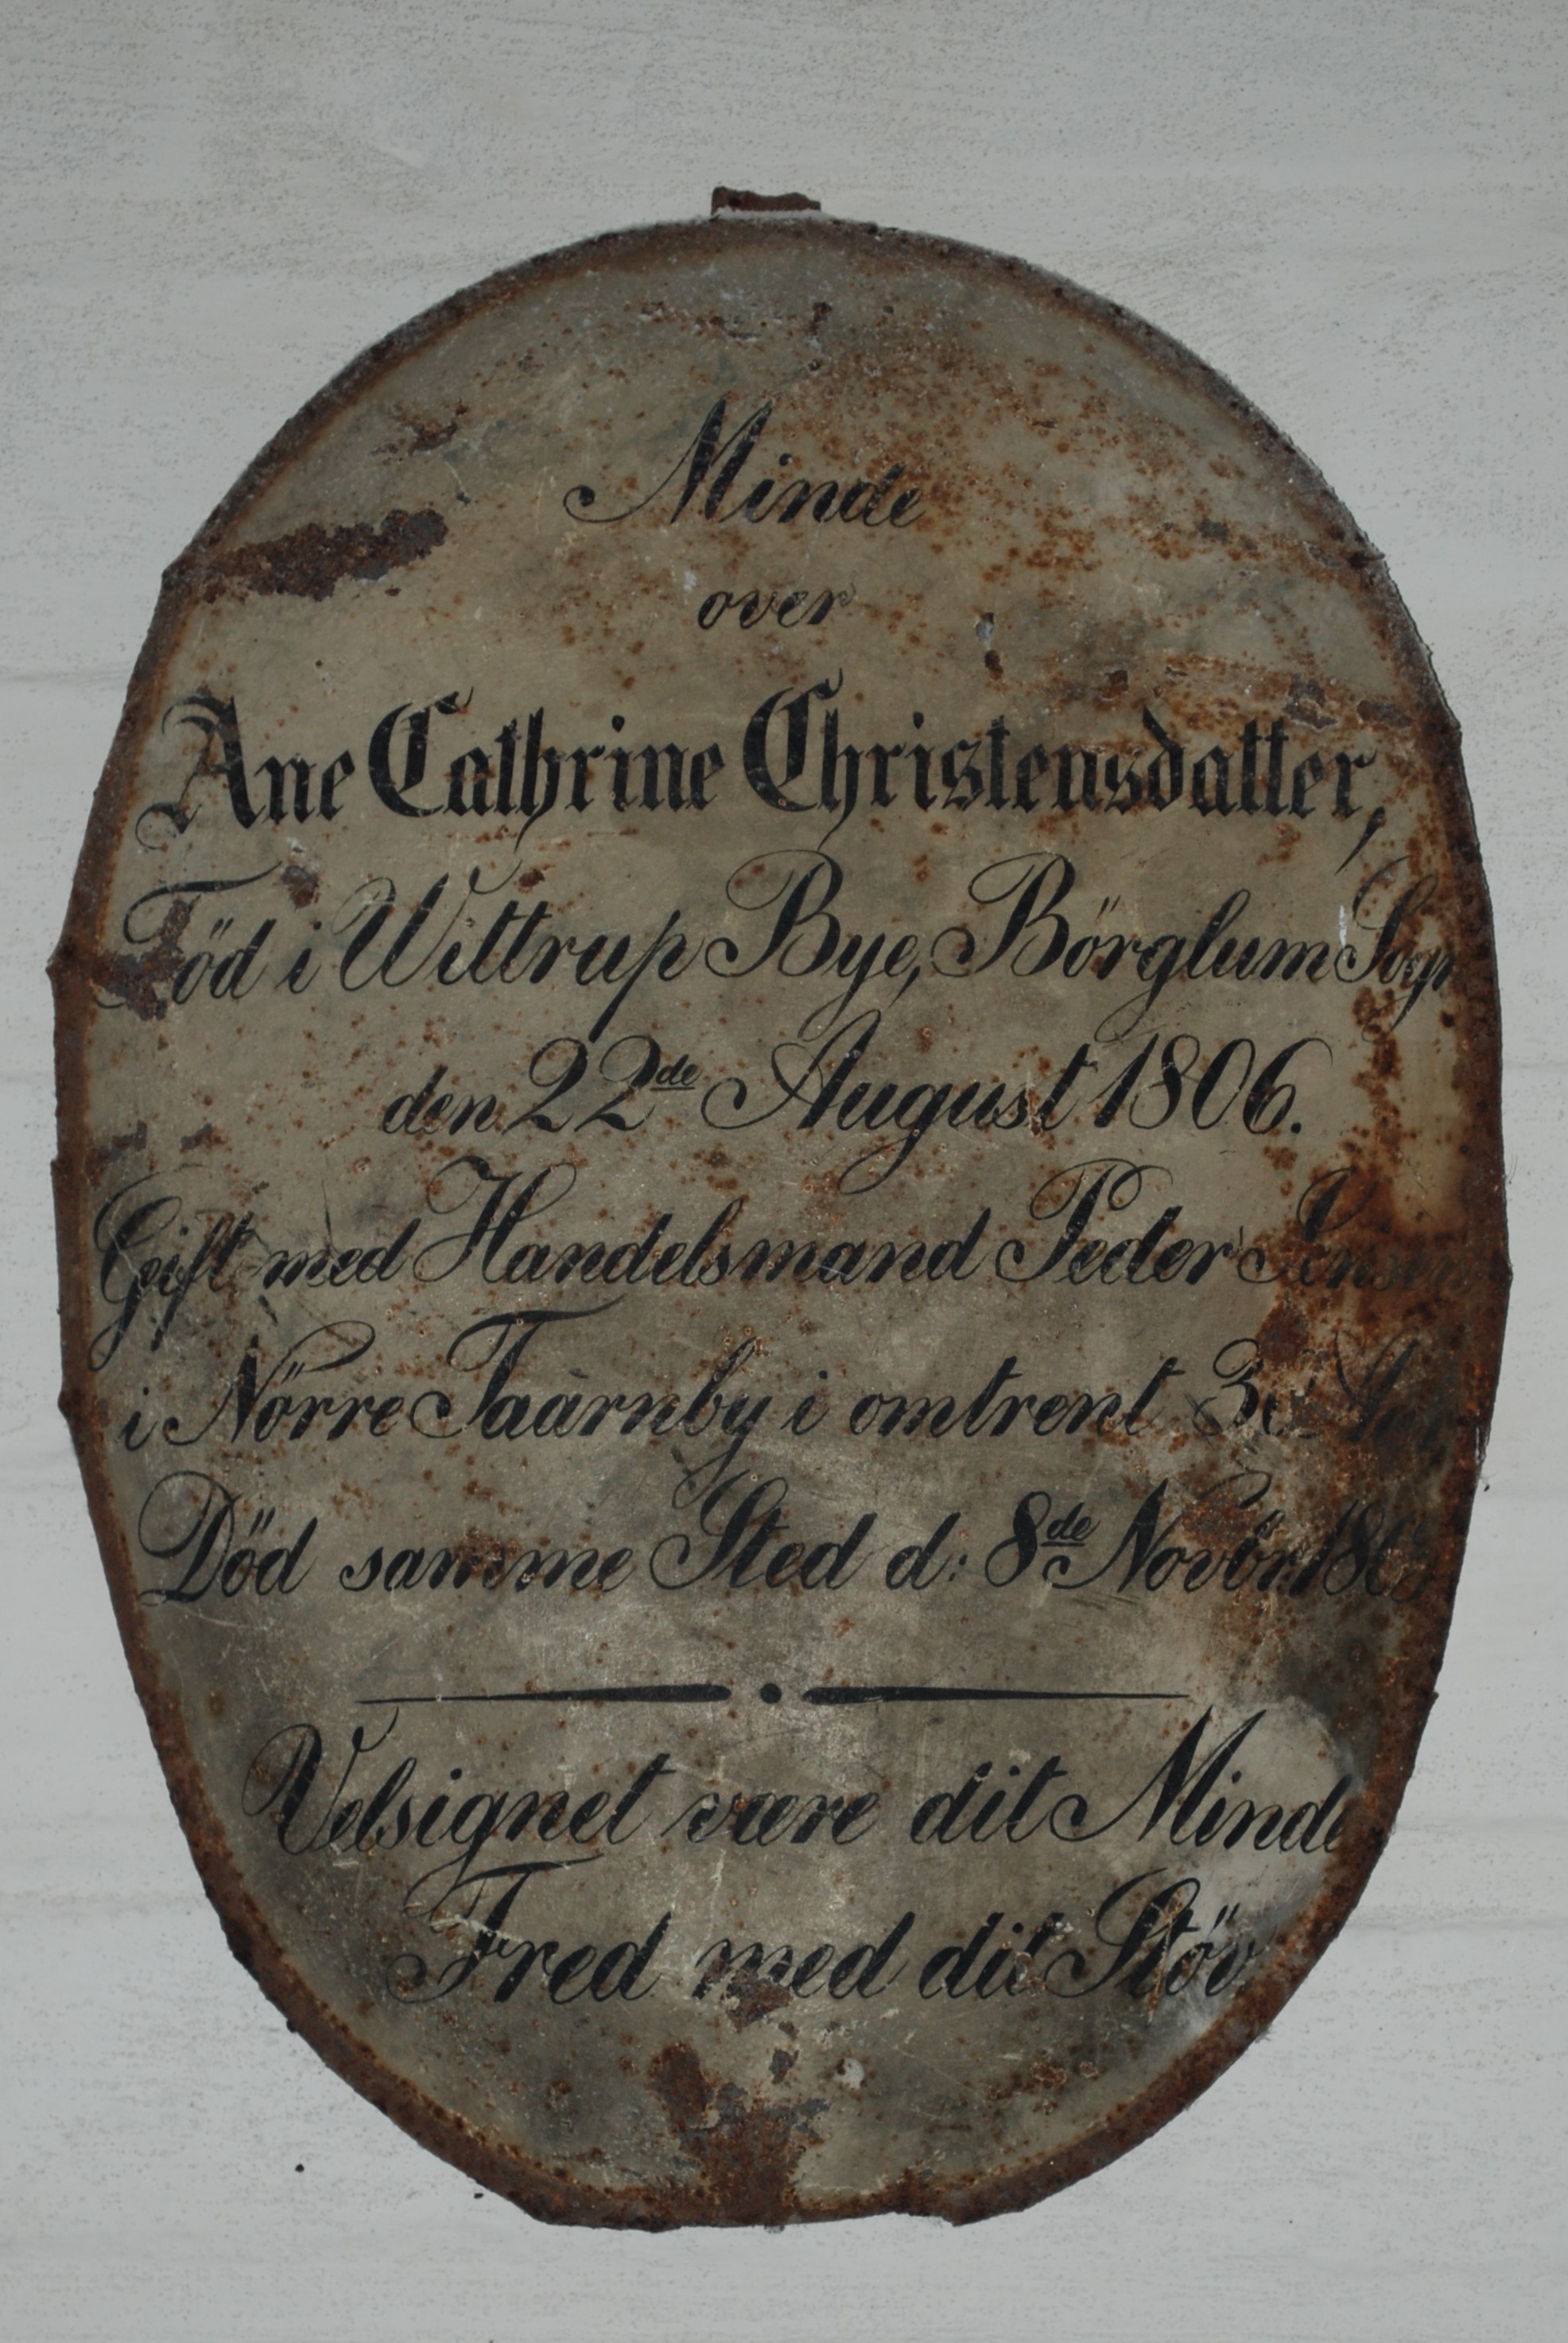 Minde
over
Ane Cathrine Christensdatter,
Föd i Wittrup Bye, Börglum Sogn
den 22de August 1806.
Gift med Handelsmand Peder Jensen
i Nörre Taårnby i omtrent
Död samme Sted d: 8de Novbr.
Velsignet være dit Minde
Fred med dit Stöv